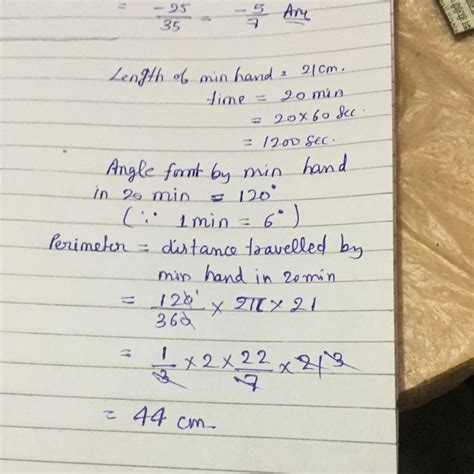 = -25/35 = -5/7 Ans
Length of min hand = 21cm.
time = 20 min
= 20×60 Sec.
= 1200 Sec.
Angle formt by min hand
in 20 min = 120°
(∵ 1 min = 6°)
Perimeter = distance travelled by
min hand in 20 min
= 120°/360 × 2π × 21
= 1/3 × 2 × 22/7 × 21 3
= 44 cm